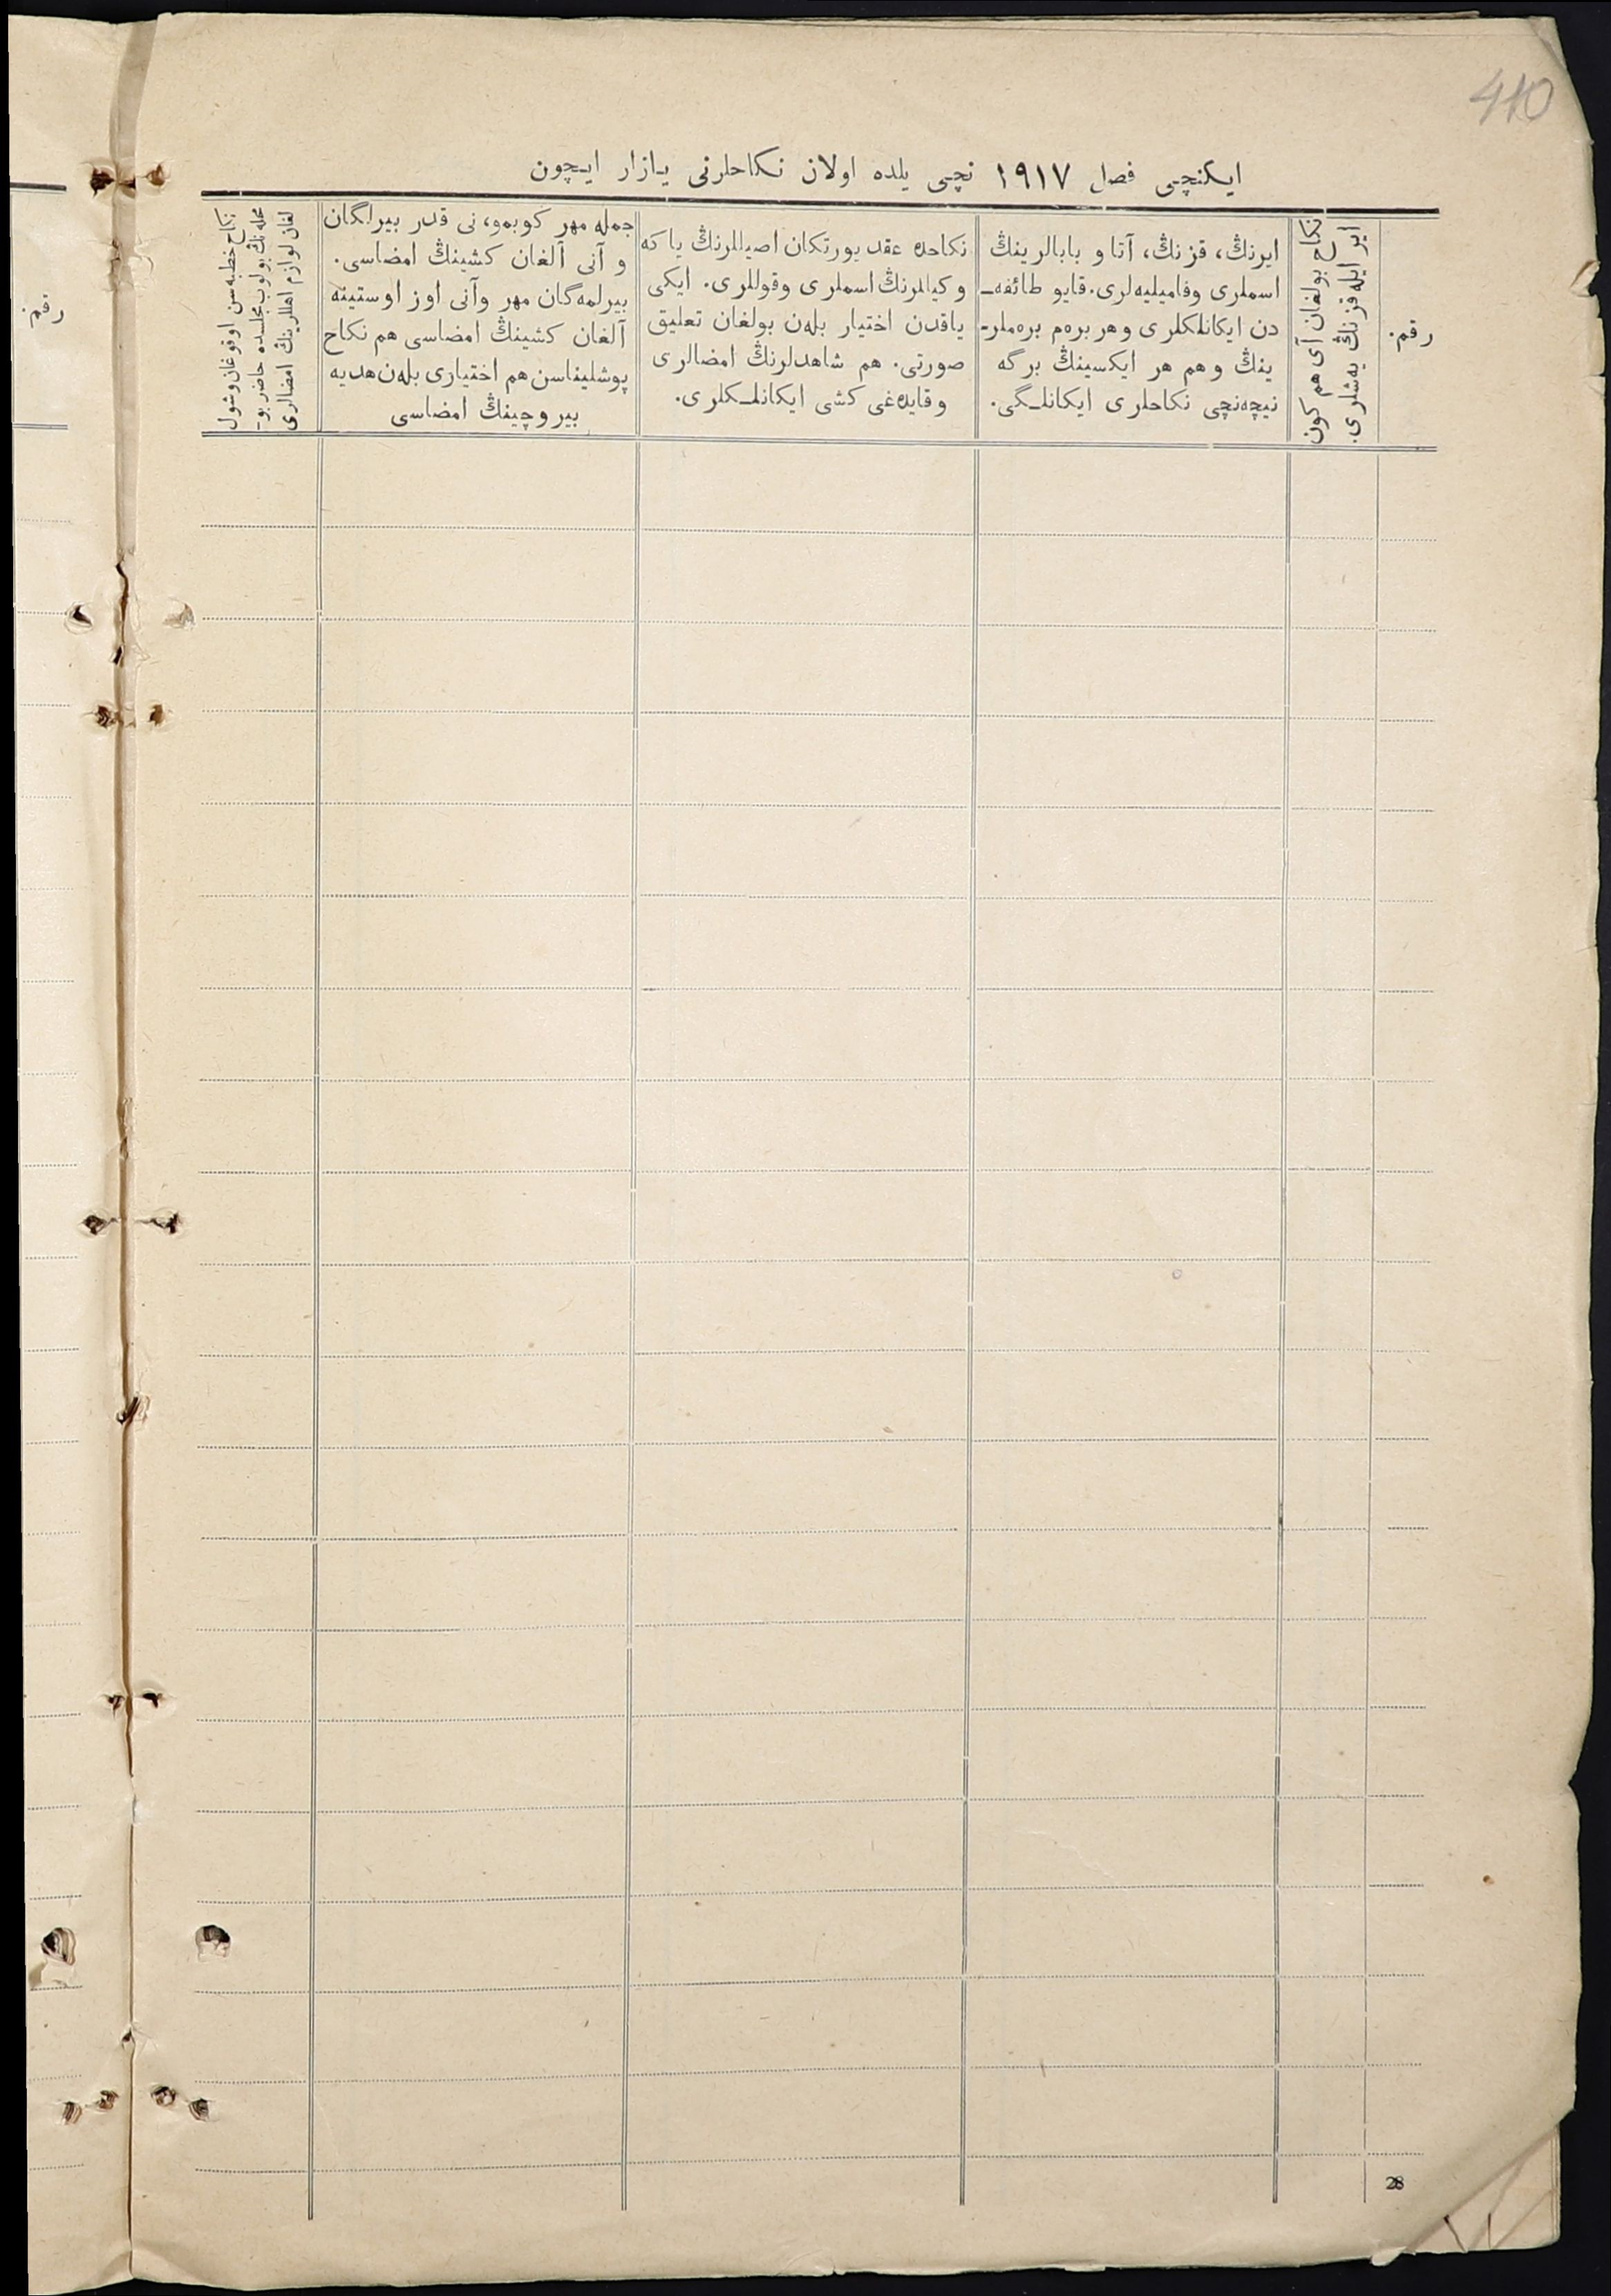 410
ایکنچی فصل ١٩١٧ نچی یلده اولان نکاحلرنی یازار ایچون
رقم.
نکاح بولغان آی هم کون
ایر ایله قزنڭ یه‌شلری.
ایرنڭ، قزنڭ، آتا و بابالرینڭ
اسملری وفامیلیه‌لری. قایو طائفه‌ـ
دن ایکانلکلری وهر بره‌م بره‌ملر-
ینڭ وهم هر ایکسینڭ برگه
نیچه‌نچی نکاحلری ایکانلـگی.
نکاحده عقد یورتکان اصیللرنڭ یا که
وکیللرنڭ اسملری وقوللری. ایکی
یاقدن اختیار بله‌ن بولغان تعلیق
صورتی. هم شاهدلرنڭ امضالری
وقایده‌غی کشی ایکانلـکلری.
جمله مهر کوبمو، نی قدر بیرلگان
و آنی آلغان کشینڭ امضاسی.
بیرلمه‌گان مهر وآنی اوز اوستینه
آلغان کشینڭ امضاسی هم نکاح
پوشلیناسن هم اختیاری بله‌ن هدیه
بیروچینڭ امضاسی
نکاح خطبه‌سن اوقوغان وشول
محله‌نڭ بولوب مجلسده حاضر بو-
لغان لوازم اهللرینڭ امضالری
رقم.
28